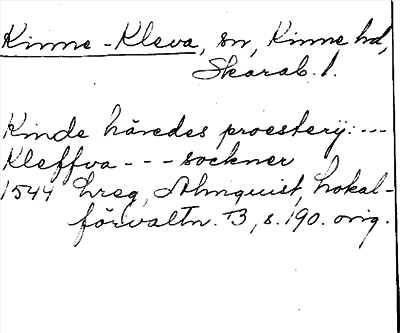 Kinne-Kleva, sn, Kinne hd,
Skarab. l.
Kinde häredes proestery: ---
Kleffva --- sockner
1544 Lreg, Almquist, Lokal-
förvaltn. B, s. 190. orig.